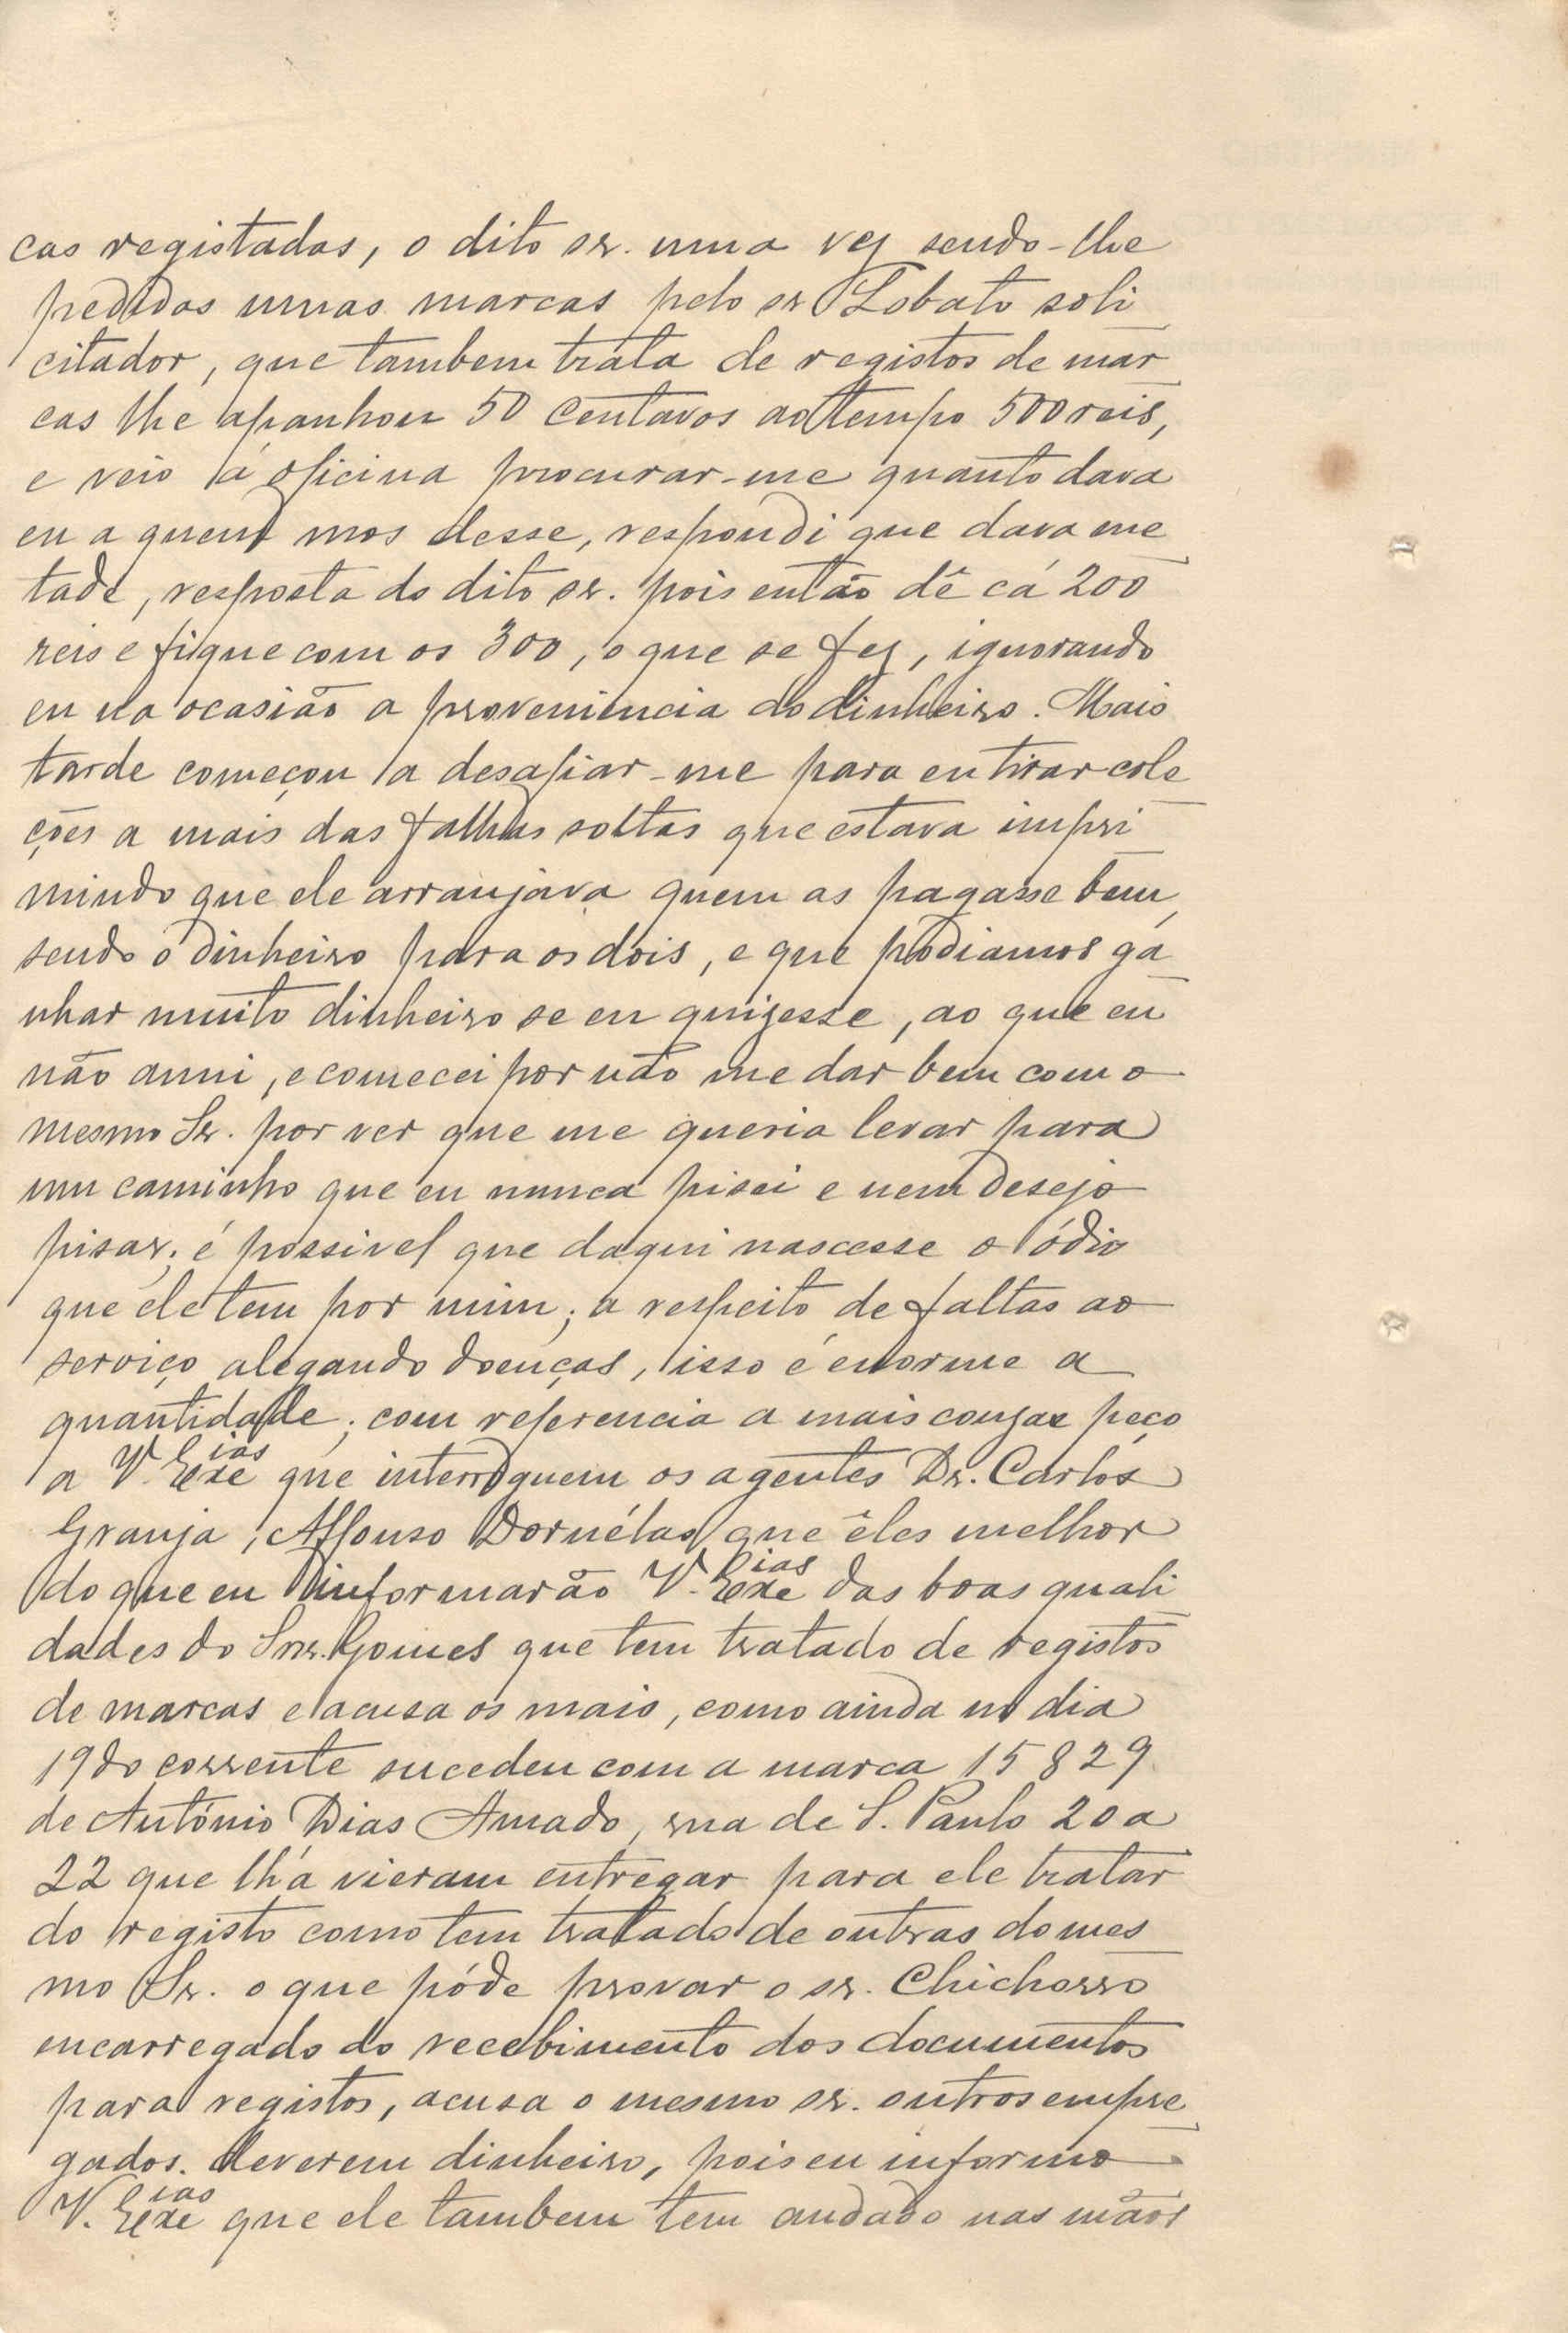 cas registadas, o dito sr. uma vez sendo-lhe
pedidas umas marcas pelo sr Lobato soli
citador, que tambem trata de registos de mar
cas lhe apanhou 50 centavos ao tempo 500 reis,
e veio á oficina procurar-me quanto dava
eu a quem mos desse, respondi que dava me
tade, resposta do dito sr. pois então dê cá 200
reis e fique com os 300, o que se fez, ignorando
eu na ocasião a proveniencia do dinheiro. Mais
tarde começou a desafiar-me para eu tirar cole
ções a mais das falhas soltas que estava impri
mindo que ele arranjava quem as pagasse bem,
sendo o dinheiro para os dois, e que podiamos ga
nhar muito dinheiro se eu quizesse, ao que eu
não anui, e comecei por não me dar bem com o
mesmo Sr. por ver que me queria levar para
um caminho que eu nunca pisei e nem desejo
pisar; é possivel que daqui nascesse o ódio
que ele tem por mim; a respeito de faltas ao
serviço alegando doenças, isso é enorme a
quantidade; com referencia a mais couzas peço
a V. Exe^ias que interroguem os agentes Dr. Carlos
Granja, Affonso Dornélas que êles melhor
do que eu informarão V. Exe^ias das boas quali
dades do Snr. Gomes que tem tratado de registos
de marcas e acusa os mais, como ainda no dia
19 do corrente sucedeu com a marca 15829
de António Dias Amado, rua de S. Paulo 20 a
22 que lh'a vieram entregar para ele tratar
do registo como tem tratado de outras do mes
mo Sr. o que póde provar o sr. Chichorro
encarregado do recebimento dos documentos
para registos, acusa o mesmo sr. outros empre
gados. deverem dinheiro, pois eu informo
V. Exe^ias que ele tambem tem andado nas mãos